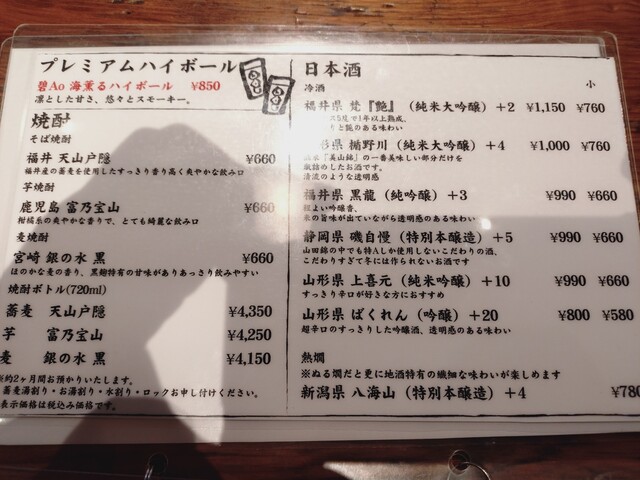 プレミアムハイボール
碧Ao 海薫るハイボール ¥850
凛とした甘さ、悠々とスモーキー。
焼酎
そば焼酎
福井 天山戸隠 ¥660
福井産の蕎麦を使用したすっきり香り高く爽やかな飲み口
芋焼酎
鹿児島 富乃宝山 ¥660
柑橘系の爽やかな香りで、とても綺麗な飲み口
麦焼酎
宮崎 銀の水 黒 ¥660
ほのかな麦の香り、黒麹特有の甘味がありあっさり飲みやすい
焼酎ボトル(720ml)
蕎麦 天山戸隠 ¥4,350
芋 富乃宝山 ¥4,250
麦 銀の水 黒 ¥4,150
※約2ヶ月間お預かりいたします。
蕎麦湯割り・お湯割り・水割り・ロックお申し付けください。
表示価格は税込み価格です。
日本酒
冷酒 小
福井県 梵『艶』(純米大吟醸)+2 ¥1,150 ¥760
5度で1年以上熟成、
りと艶のある味わい
形県 楯野川(純米大吟醸)+4 ¥1,000 ¥760
『美山錦』の一番美味しい部分だけを
瓶詰めしたお酒です。
清流のような透明感
福井県 黒龍(純吟醸)+3 ¥990 ¥660
程よい吟醸香、
米の旨味が出ていながら透明感のある味わい
静岡県 磯自慢(特別本醸造)+5 ¥990 ¥660
山田錦の中でも特Aしか使用しないこだわりの酒、
こだわりすぎて冬には作られないお酒です
山形県 上喜元(純米吟醸)+10 ¥990 ¥660
すっきり辛口が好きな方におすすめ
山形県 ばくれん(吟醸)+20 ¥800 ¥580
超辛口のすっきりした吟醸酒、透明感のある味わい
熱燗
※ぬる燗だと更に地酒特有の繊細な味わいが楽しめます
新潟県 八海山(特別本醸造)+4 ¥780